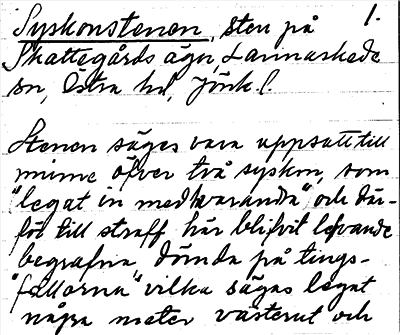 1.
Syskonstenen, sten på
Skattegårds ägn, Lannaskede
sn, Östra hd, Jönk. l.
Stenen säges vara uppsatt till
minne öfver två syskon, som
"legat in med hvarandra" och där-
för till straff här blifvit lefvande
begrafna, dömda på tings-
"fällorna", vilka sägas legat
några meter västerut och